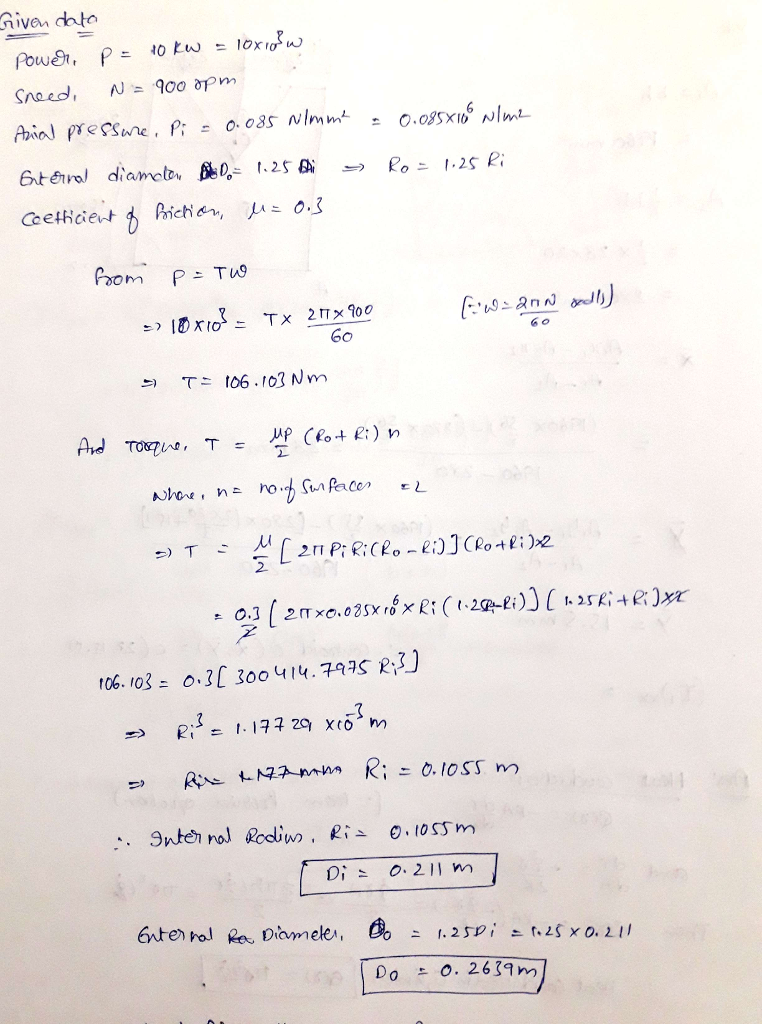 Given data
Power, P = 10 kw = 10x10³ w
Speed, N = 900 rpm
Axial pressure, Pi = 0.085 N/mm² = 0.085x10⁶ N/m²
External diameter Do = 1.25 Di ⇒ Ro = 1.25 Ri
Coefficient of friction, μ = 0.3
From P = Tω
⇒ 10x10³ = T x 2πx900/60 [∵ ω = 2πN/60 rad/s]
⇒ T = 106.103 Nm
And Torque, T = μP/2 (Ro + Ri) n
where, n = no. of surfaces = 2
⇒ T = μ/2 [2π Pi Ri (Ro - Ri)] (Ro + Ri) x2
= 0.3/2 [2π x 0.085x10⁶ x Ri (1.25Ri - Ri)] [1.25Ri + Ri] x2
106.103 = 0.3 [300414.7975 Ri³]
⇒ Ri³ = 1.17729 x10⁻³ m
⇒ Ri = 0.1055 m
∴ Internal Radius, Ri = 0.1055m
Di = 0.211 m
External Diameter, Do = 1.25Di = 1.25 x 0.211
Do = 0.2639m